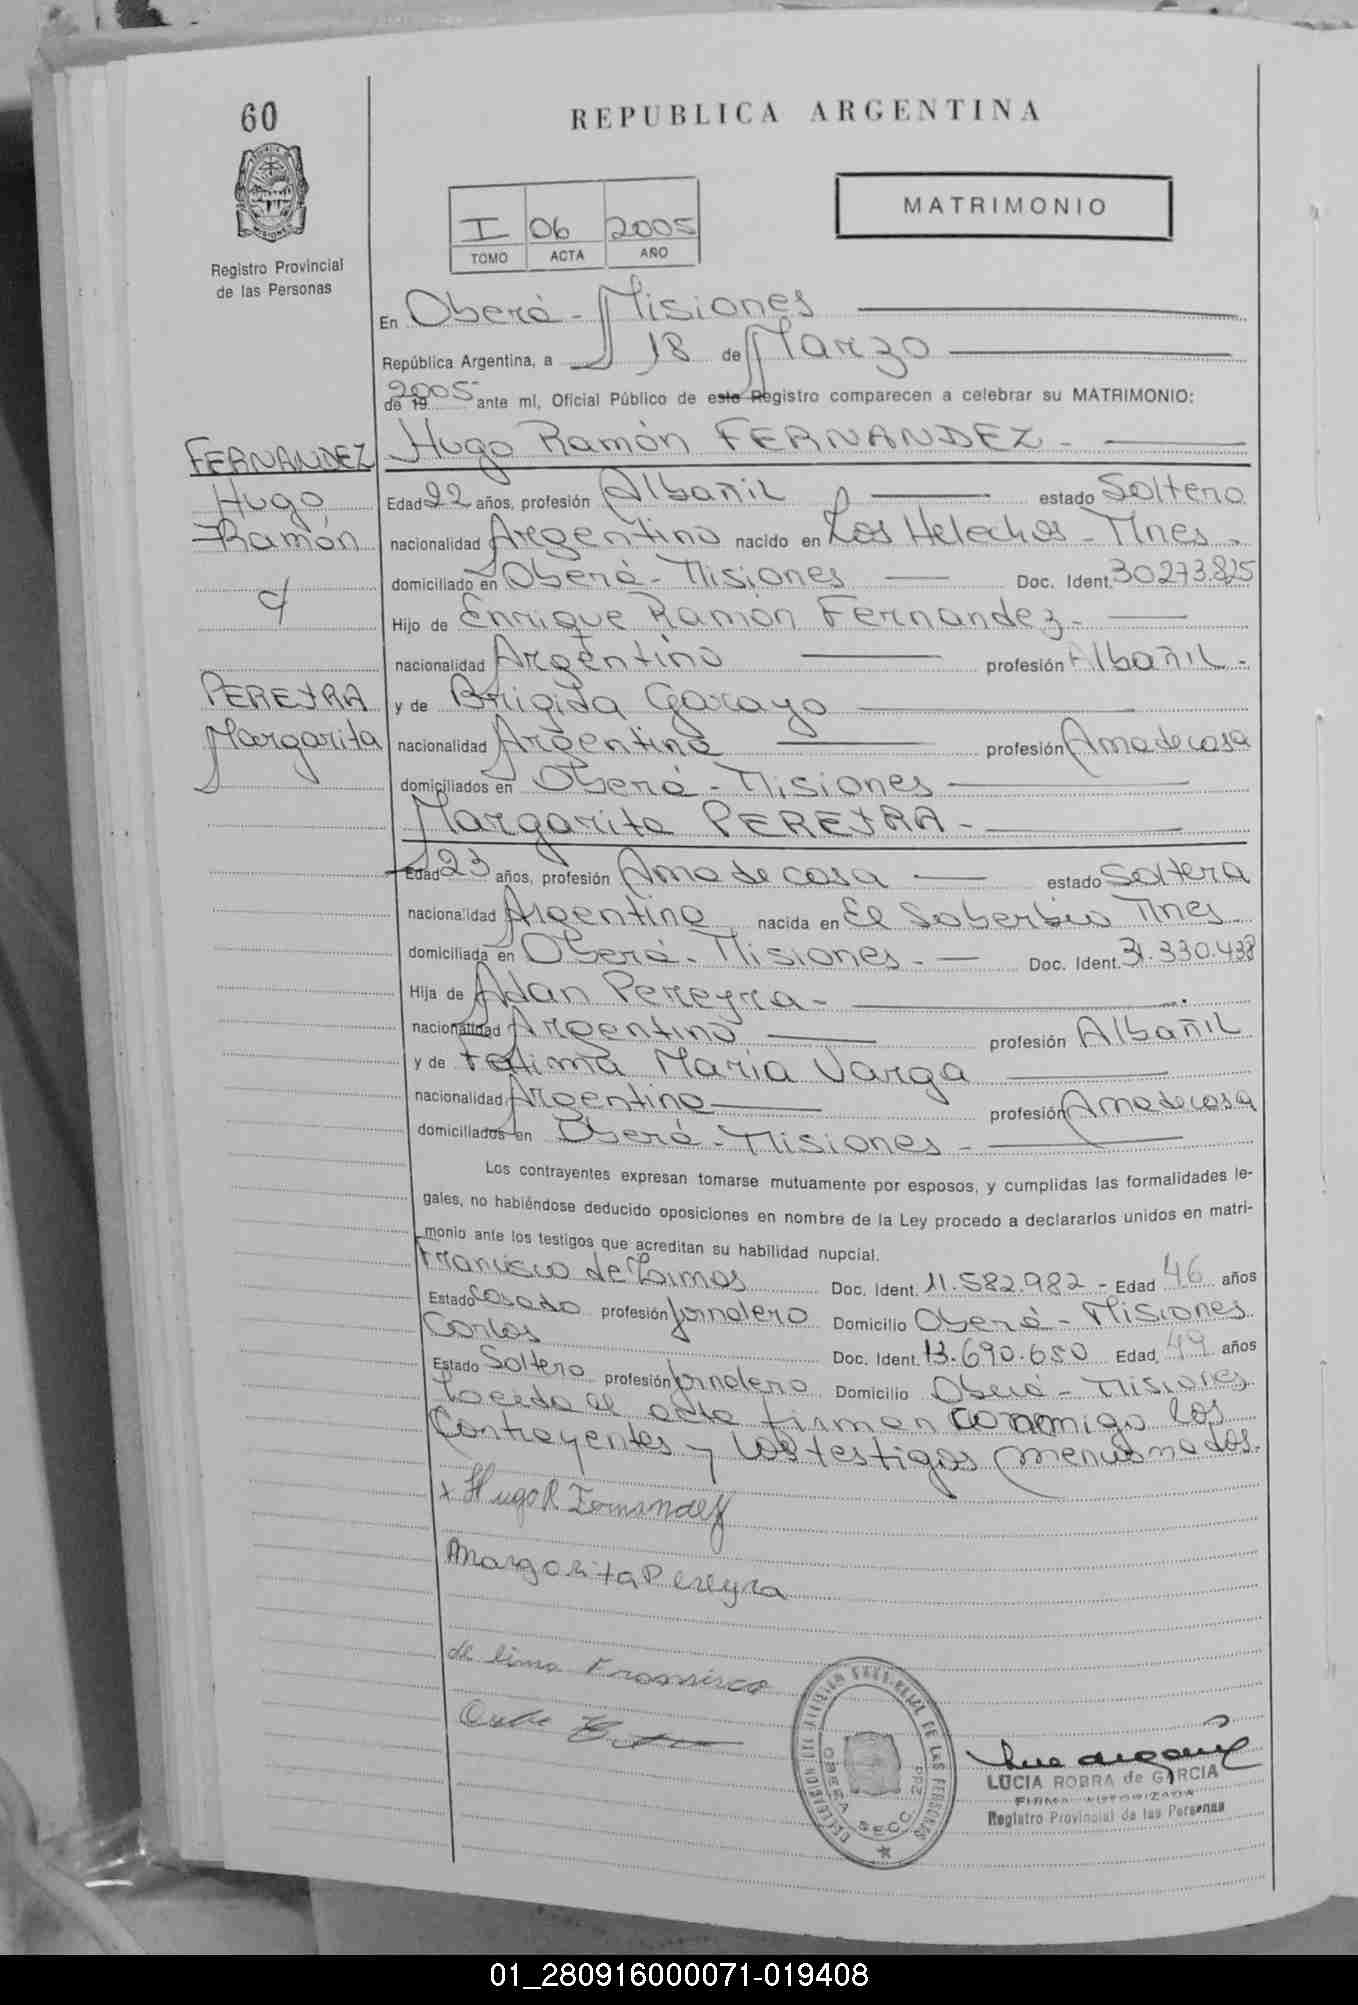 60
REPUBLICA ARGENTINA
MATRIMONIO
I 06 2005
TOMO ACTA AÑO
Registro Provincial
de las Personas
En Oberá - Misiones
República Argentina, a 18 de Marzo
de 19 2005 ante mí, Oficial Público de este Registro comparecen a celebrar su MATRIMONIO:
FERNANDEZ
Hugo
Ramón
c/
PEREYRA
Margarita
Hugo Ramón FERNANDEZ -
Edad 22 años, profesión Albañil estado Soltero
nacionalidad Argentino nacido en Los Helechos - Mnes.
domiciliado en Oberá - Misiones Doc. Ident. 30273.825
Hijo de Enrique Ramón Fernandez -
nacionalidad Argentino profesión Albañil -
y de Brigida Garayo
nacionalidad Argentina profesión Ama de casa
domiciliados en Oberá - Misiones
Margarita PEREYRA -
Edad 23 años, profesión Ama de casa estado Soltera
nacionalidad Argentina nacida en El Soberbio Mnes
domiciliada en Oberá - Misiones - Doc. Ident. 31.330.438
Hija de Adan Pereyra -
nacionalidad Argentino profesión Albañil
y de Fatima Maria Varga
nacionalidad Argentina profesión Ama de casa
domiciliados en Oberá - Misiones -
Los contrayentes expresan tomarse mutuamente por esposos, y cumplidas las formalidades le-
gales, no habiéndose deducido oposiciones en nombre de la Ley procedo a declararlos unidos en matri-
monio ante los testigos que acreditan su habilidad nupcial.
Francisco de Doc. Ident. 11.582.982 - Edad 46 años
Estado Casado profesión Jornalero Domicilio Oberá - Misiones
Carlos Doc. Ident. 13.690.650 Edad 49 años
Estado Soltero profesión Jornalero Domicilio Oberá - Misiones
Leída el acta firman conmigo los
Contrayentes y los testigos mencionados.
x Hugo R Fernandez
Margarita Pereyra
de lima Fransisco
OBERA SECC. 2da
LUCIA ROBRA de GARCIA
FIRMA AUTORIZADA
Registro Provincial de las Personas
01_280916000071-019408